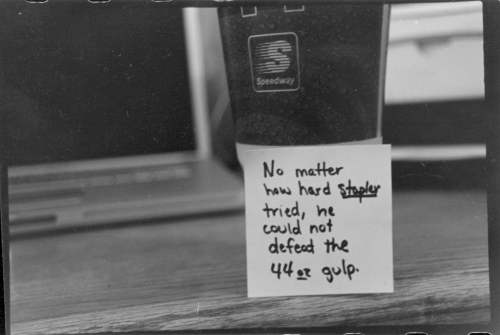 Speedway
No matter
how hard Stapler
tried, he
could not
defeat the
44 oz gulp.